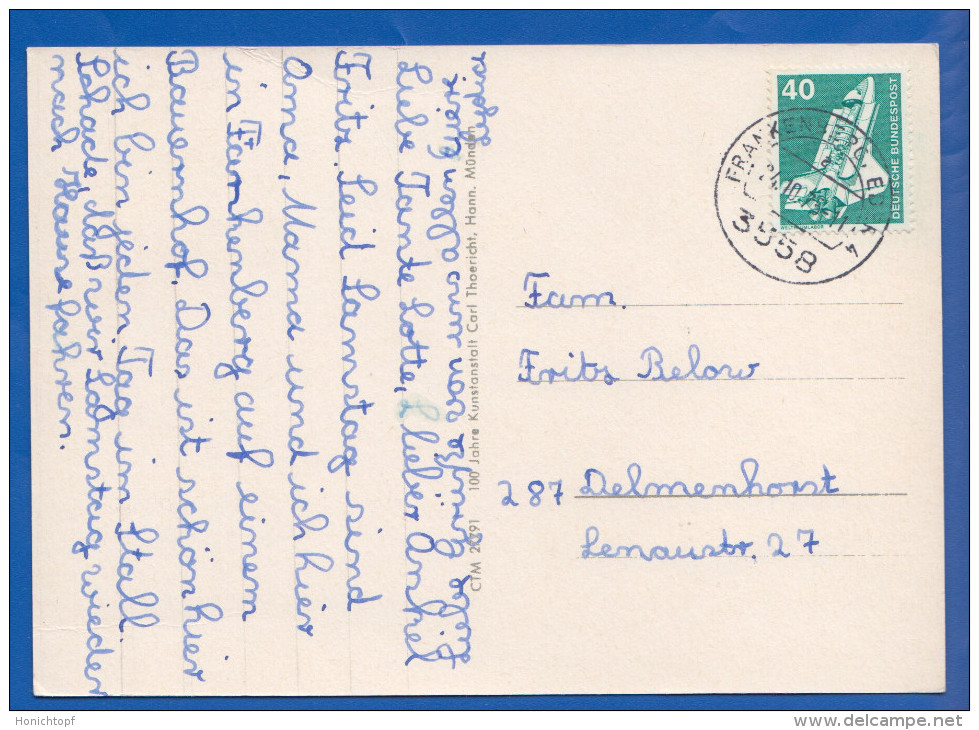 Liebe Tante Lotte, lieber Onkel
Fritz. Seid Samstag sind
Oma, Mama und ich hier
in Frankenberg auf einem
Bauernhof. Das ist schön hier
ich bin jeden Tag im Stall.
Schade, daß wir Samstag wieder
nach Hause fahren.
Lydia
CTM 20291 100 Jahre Kunstanstalt Carl Thoericht, Hann. Münden
40
DEUTSCHE BUNDESPOST
WELTRAUMLABOR
FRANKENBERG, EDER
3558
Fam.
Fritz Below
287 Delmenhorst
Lenaustr. 27
Honichtopf
www.delcampe.net